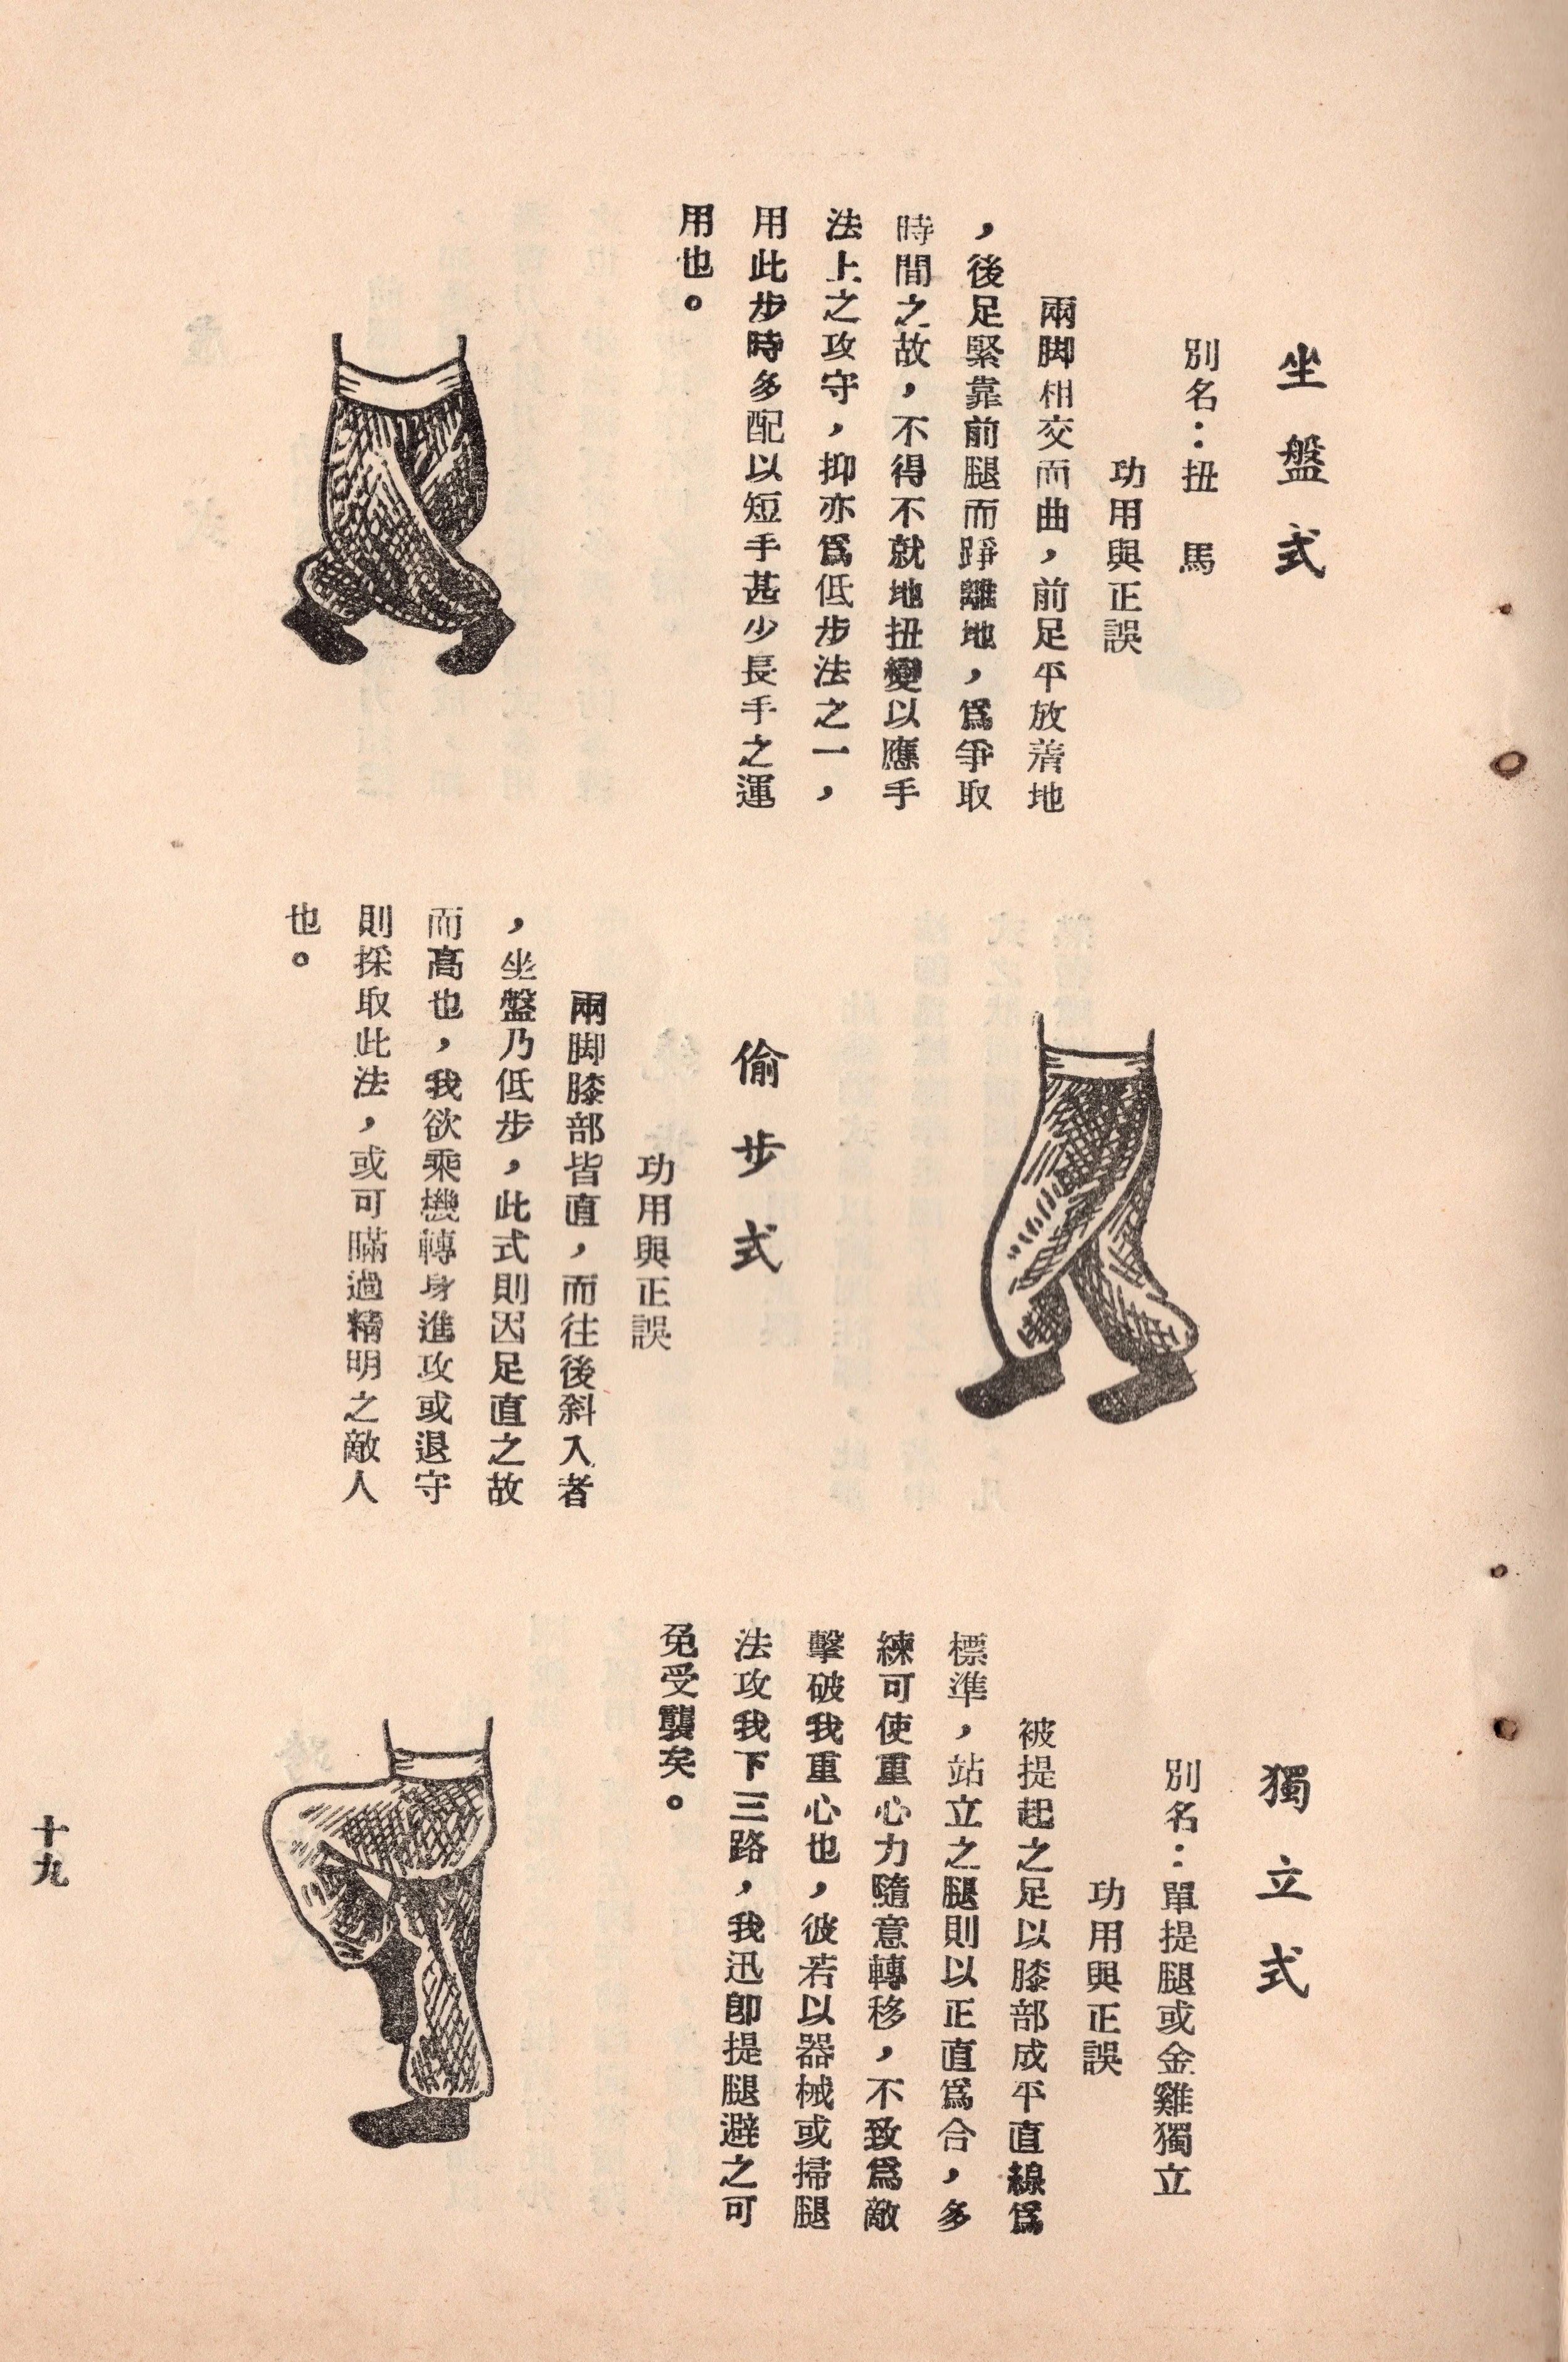 坐盤式
別名：扭　馬
功用與正誤
兩脚相交而曲，前足平放着地
，後足緊靠前腿而踭離地，爲爭取
時間之故，不得不就地扭變以應手
法上之攻守，抑亦爲低步法之一，
用此步時多配以短手甚少長手之運
用也。
偷步式
功用與正誤
兩脚膝部皆直，而往後斜入者
，坐盤乃低步，此式則因足直之故
而高也，我欲乘機轉身進攻或退守
則採取此法，或可瞞過精明之敵人
也。
獨立式
別名：單提腿或金雞獨立
功用與正誤
被提起之足以膝部成平直線爲
標準，站立之腿則以正直爲合，多
練可使重心力隨意轉移，不致爲敵
擊破我重心也，彼若以器械或掃腿
法攻我下三路，我迅卽提腿避之可
免受襲矣。
十九